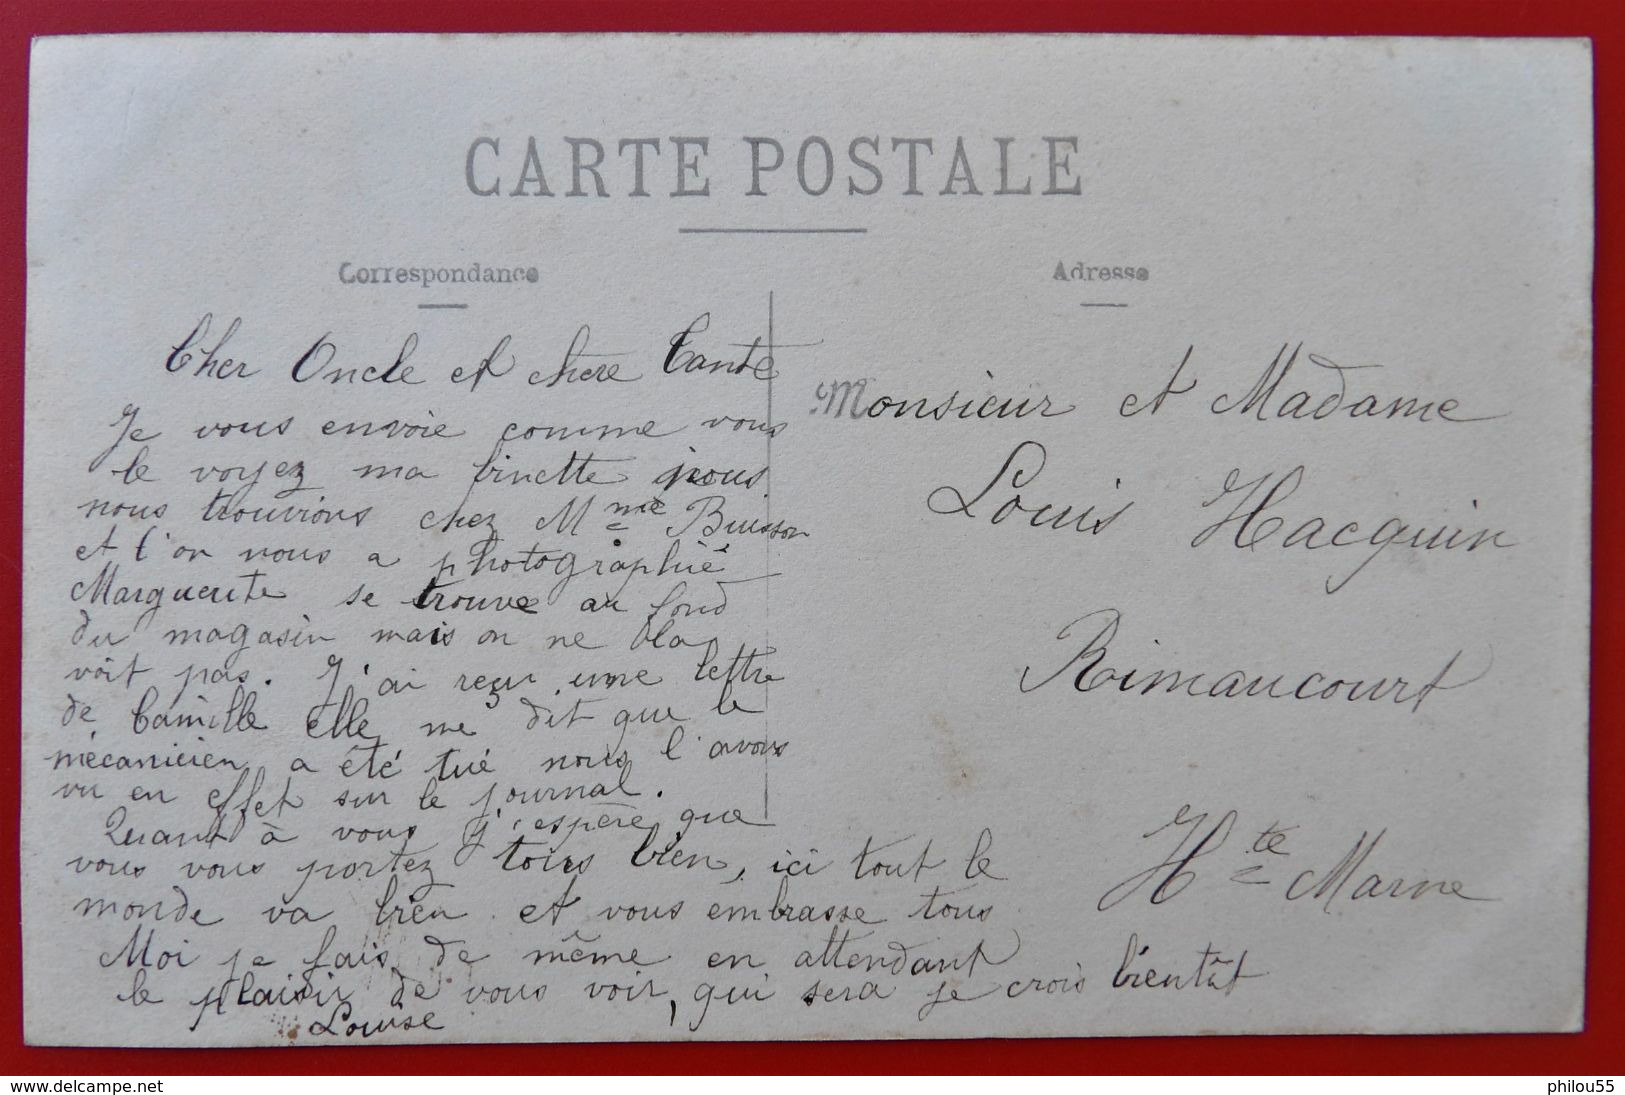 CARTE POSTALE
Correspondance
Cher Oncle et chere Tante
Je vous envoie comme vous
le voyez ma binette nous
nous trouvions chez Mme Buisson
et l'on nous a photographié
Marguerite se trouve au fond
du magasin mais on ne la
voit pas. J'ai reçu une lettre
de Camille elle me dit que le
mécanicien a été tué nous l'avons
vu en effet sur le journal.
Quant à vous j'espère que
vous vous portez tous bien, ici tout le
monde va bien et vous embrasse tous
Moi je fais de même en attendant
le plaisir de vous voir, qui sera je crois bientôt
Louise
Adresse
Monsieur et Madame
Louis Hacquin
Rimaucourt
Hte Marne
www.delcampe.net
philou55